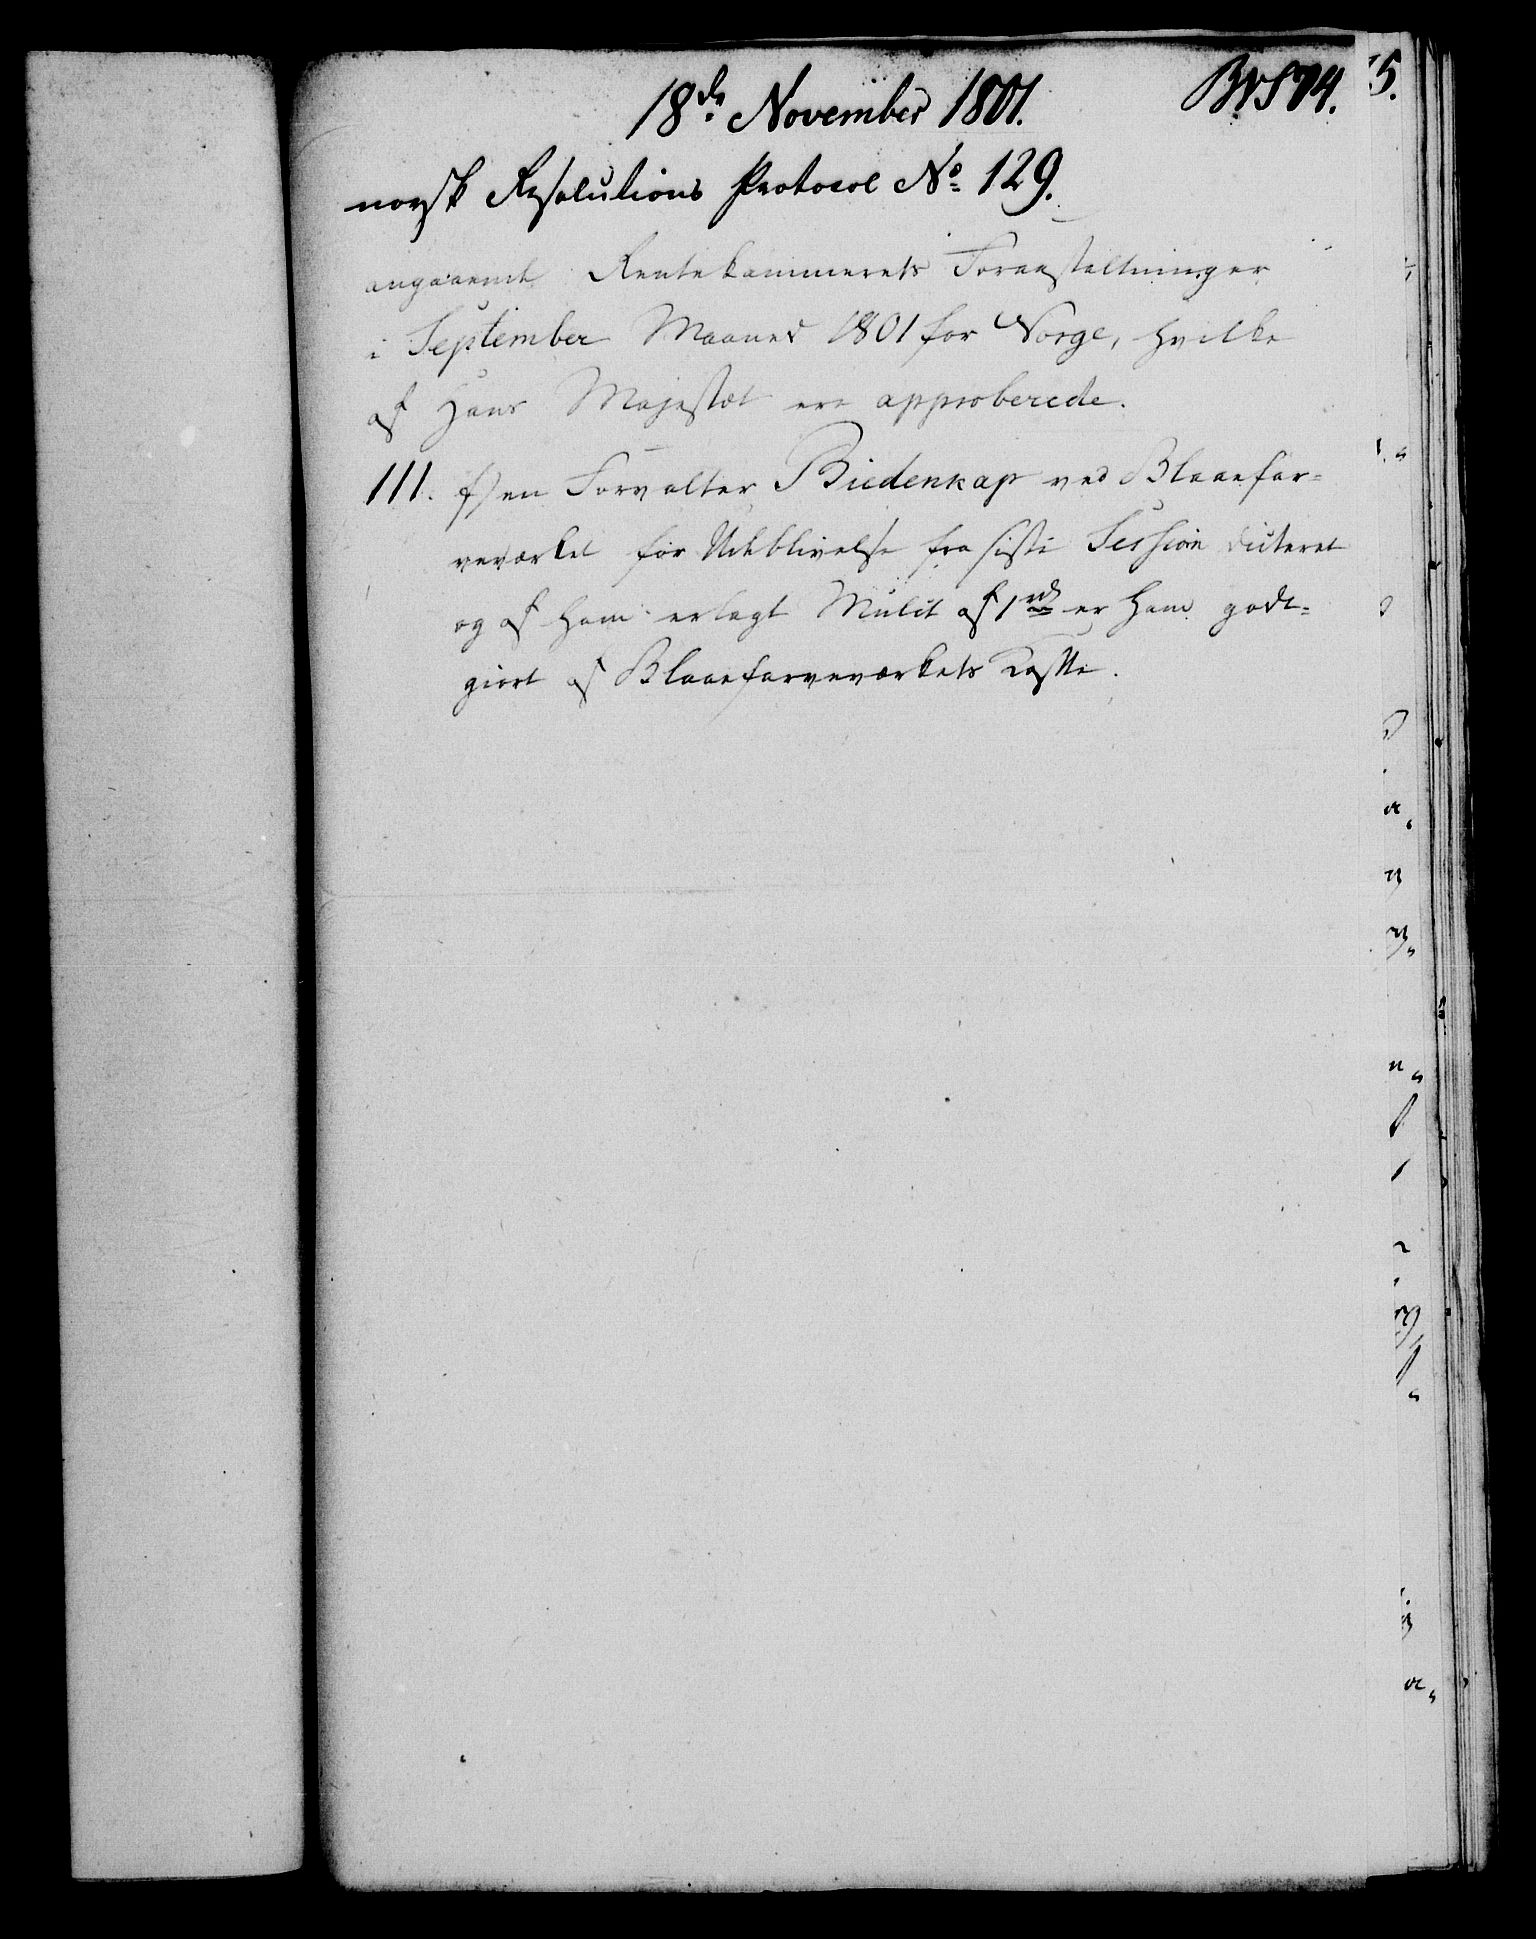 18de November 1801.
norsk Resolutions Protocol No 129.
angaaende Rentekammerets Foranstaltninger
i September Maaned 1801 for Norge, hvilke
af Hans Majestæt ere approberede.
111. Een Forvalter Biedenkap ved Blaaefar=
veværket for Udeblivelse fra sidste Session dicteret
og af ham erlagt Mulct af 1 rd er ham godt=
giort af Blaaefarveværkets Casse.